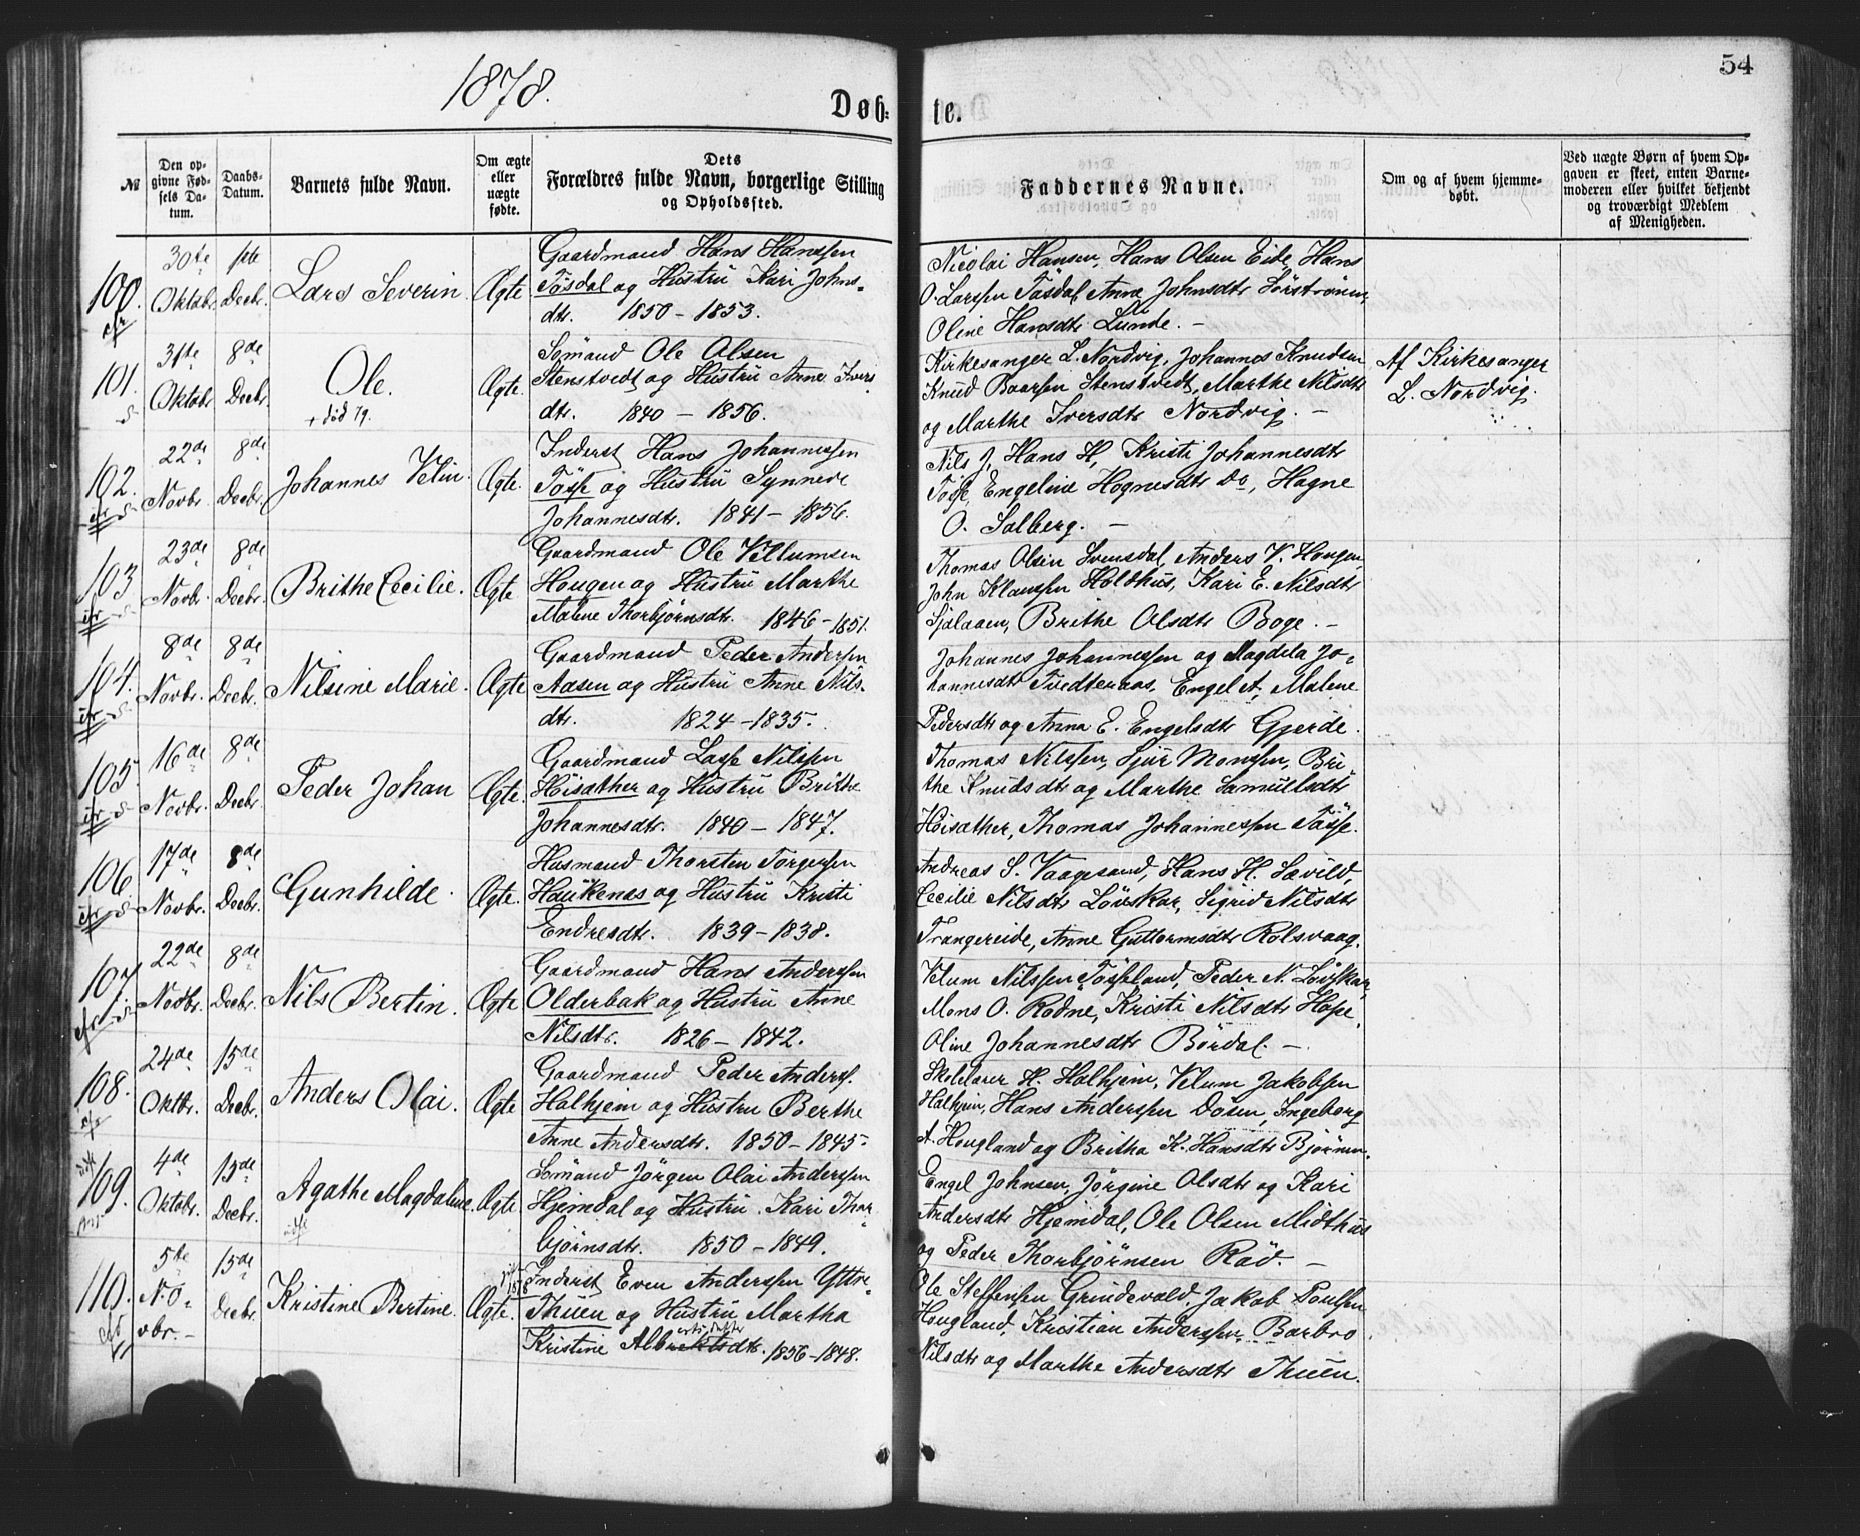 1878.
54
Døb-
te.
№
Den op-
givne Fød-
sels Da-
tum.
Daabs-
Datum.
Barnets fulde Navn.
Om ægte
eller
uægte
fødte.
Dets
Forældres fulde Navn, borgerlige Stilling
og Opholdssted.
Faddernes Navne.
Om og af hvem hjemme-
døbt.
Ved uægte Børn af hvem Op-
gaven er skeet, enten Barne-
moderen eller hvilket bekjendt
og troværdigt Medlem
af Menigheden.
100.
30te
Oktobr.
Decbr.
Lars Severin
Ægte
Gaardmand Hans Hanssen
Tøsdal og Hustru Kari Johns-
dtr. 1850 - 1853.
Nicolai Hansen, Hans Olsen Eide, Hans
O. Larssen Tøsdal, Anne Johnsdtr
Oline Hansdtr Lunde. -
101.
31te
Oktobr.
8de
Decbr.
Ole.
+ død 79.
Ægte.
Sømand Ole Olsen
Stenstvedt og Hustru Anne Ivers
dtr. 1840 - 1856.
Kirkesanger L. Nordvig, Johannes Knudsen
Knud Baarsen Stenstvedt, Marthe Nilsdtr
og Marthe Iversdtr Nordvig. -
Af Kirkesanger
L. Nordvig.
102.
22de
Novbr.
8de
Decbr.
Johannes Velin
Ægte.
Inderst Hans Johannessen
Tøsse og Hustru Synneve
Johannesdtr. 1841 - 1856.
Nils J, Hans H, Kristi Johannesdtr
Tøsse, Engeline Hognesdtr Do, Hogne
O. Solberg. -
103
23de
Novbr.
8de
Decbr.
Brithe Cecilie.
Ægte
Gaardmand Ole Vellumsen
Hougen og Hustru Marthe
Malene Thorbjørnsdtr. 1846 - 1851.
Thomas Olsen Svensdal, Anders V. Hougen,
John Klaussen Holdhus, Kari E. Nilsdtr
Brithe Olsdtr Boge. -
104.
8de
Novbr.
8de
Decbr.
Nilsine Marie.
Ægte
Gaardmand Peder Andersen
Aasen og Hustru Anne Nils-
dtr. 1824 - 1835.
Johannes Johannessen og Magdela Jo-
hannesdtr Tvedteraas, Engel A, Malene
Pedersdtr og Anna E. Engelsdtr Gjerde.
105.
16de
Novbr.
8de
Decbr.
Peder Johan
Ægte.
Gaardmand Lasse Nilssen
Høisæther og Hustru Brithe
Johannesdtr. 1840 - 1847.
Thomas Nilssen, Sjur Monssen, Bri
the Knudsdtr og Marthe Samuelsdtr
Høisæther, Thomas Johannessen Tøsse.
106
17de
Novbr.
8de
Decbr.
Gunhilde.
Ægte.
Husmand Thorsten Torgersen
Haukenæs og Hustru Kristi
Endresdtr. 1839 - 1838.
Andreas S. Vaagesund, Hans H. Sævild,
Cecilie Nilsdtr Løvskar, Sigrid Nilsdtr
Trangereide, Anne Guttormsdtr Rolsvaag.
107
22de
Novbr.
8de
Decbr.
Nils Bertin.
Ægte
Gaardmand Hans Anderssen
Olderbak og Hustru Anne
Nilsdtr. 1826 - 1842.
Velum Nilssen Tøsseland, Peder N. Løvskar,
Mons O. Rodne, Kristi Nilsdtr Hope,
Oline Johannesdtr Børdal. -
108.
24de
Oktbr.
15de
Decbr.
Anders Olai.
Ægte
Gaardmand Peder Anderss.
Halhjem og Hustru Berthe
Anne Andersdtr. 1850 - 1845.
Skolelærer H. Halhjem, Velum Jakobsen
Halhjem, Hans Anderssen Døsen, Ingeborg
A. Hougland og Britha K. Hansdtr Bjørnen.
109.
4de
Oktobr.
15de
Decbr.
Agathe Magdalene.
Ægte
Sømand Jørgen Olai Anderssen
Hjemdal og Hustru Kari Thor-
bjørnsdtr. 1850 - 1849.
Engel Johnsen, Jørgine Olsdtr og Kari
Andersdtr Hjemdal, Ole Olsen Midthus
og Peder Thorbjørnsen Rød. -
110.
5te
No-
vbr. -
15de
Decbr.
Kristine Bertine.
Ægte.
Inderst Even Anderssen Yttre-
Thuen og Hustru Martha
Kristine 1856-1848.
Ole Steffensen Grindevold, Jakob Poulsen
Hougland, Kristian Anderssen, Barbro
Nilsdtr og Marthe Andersdtr Thuen.